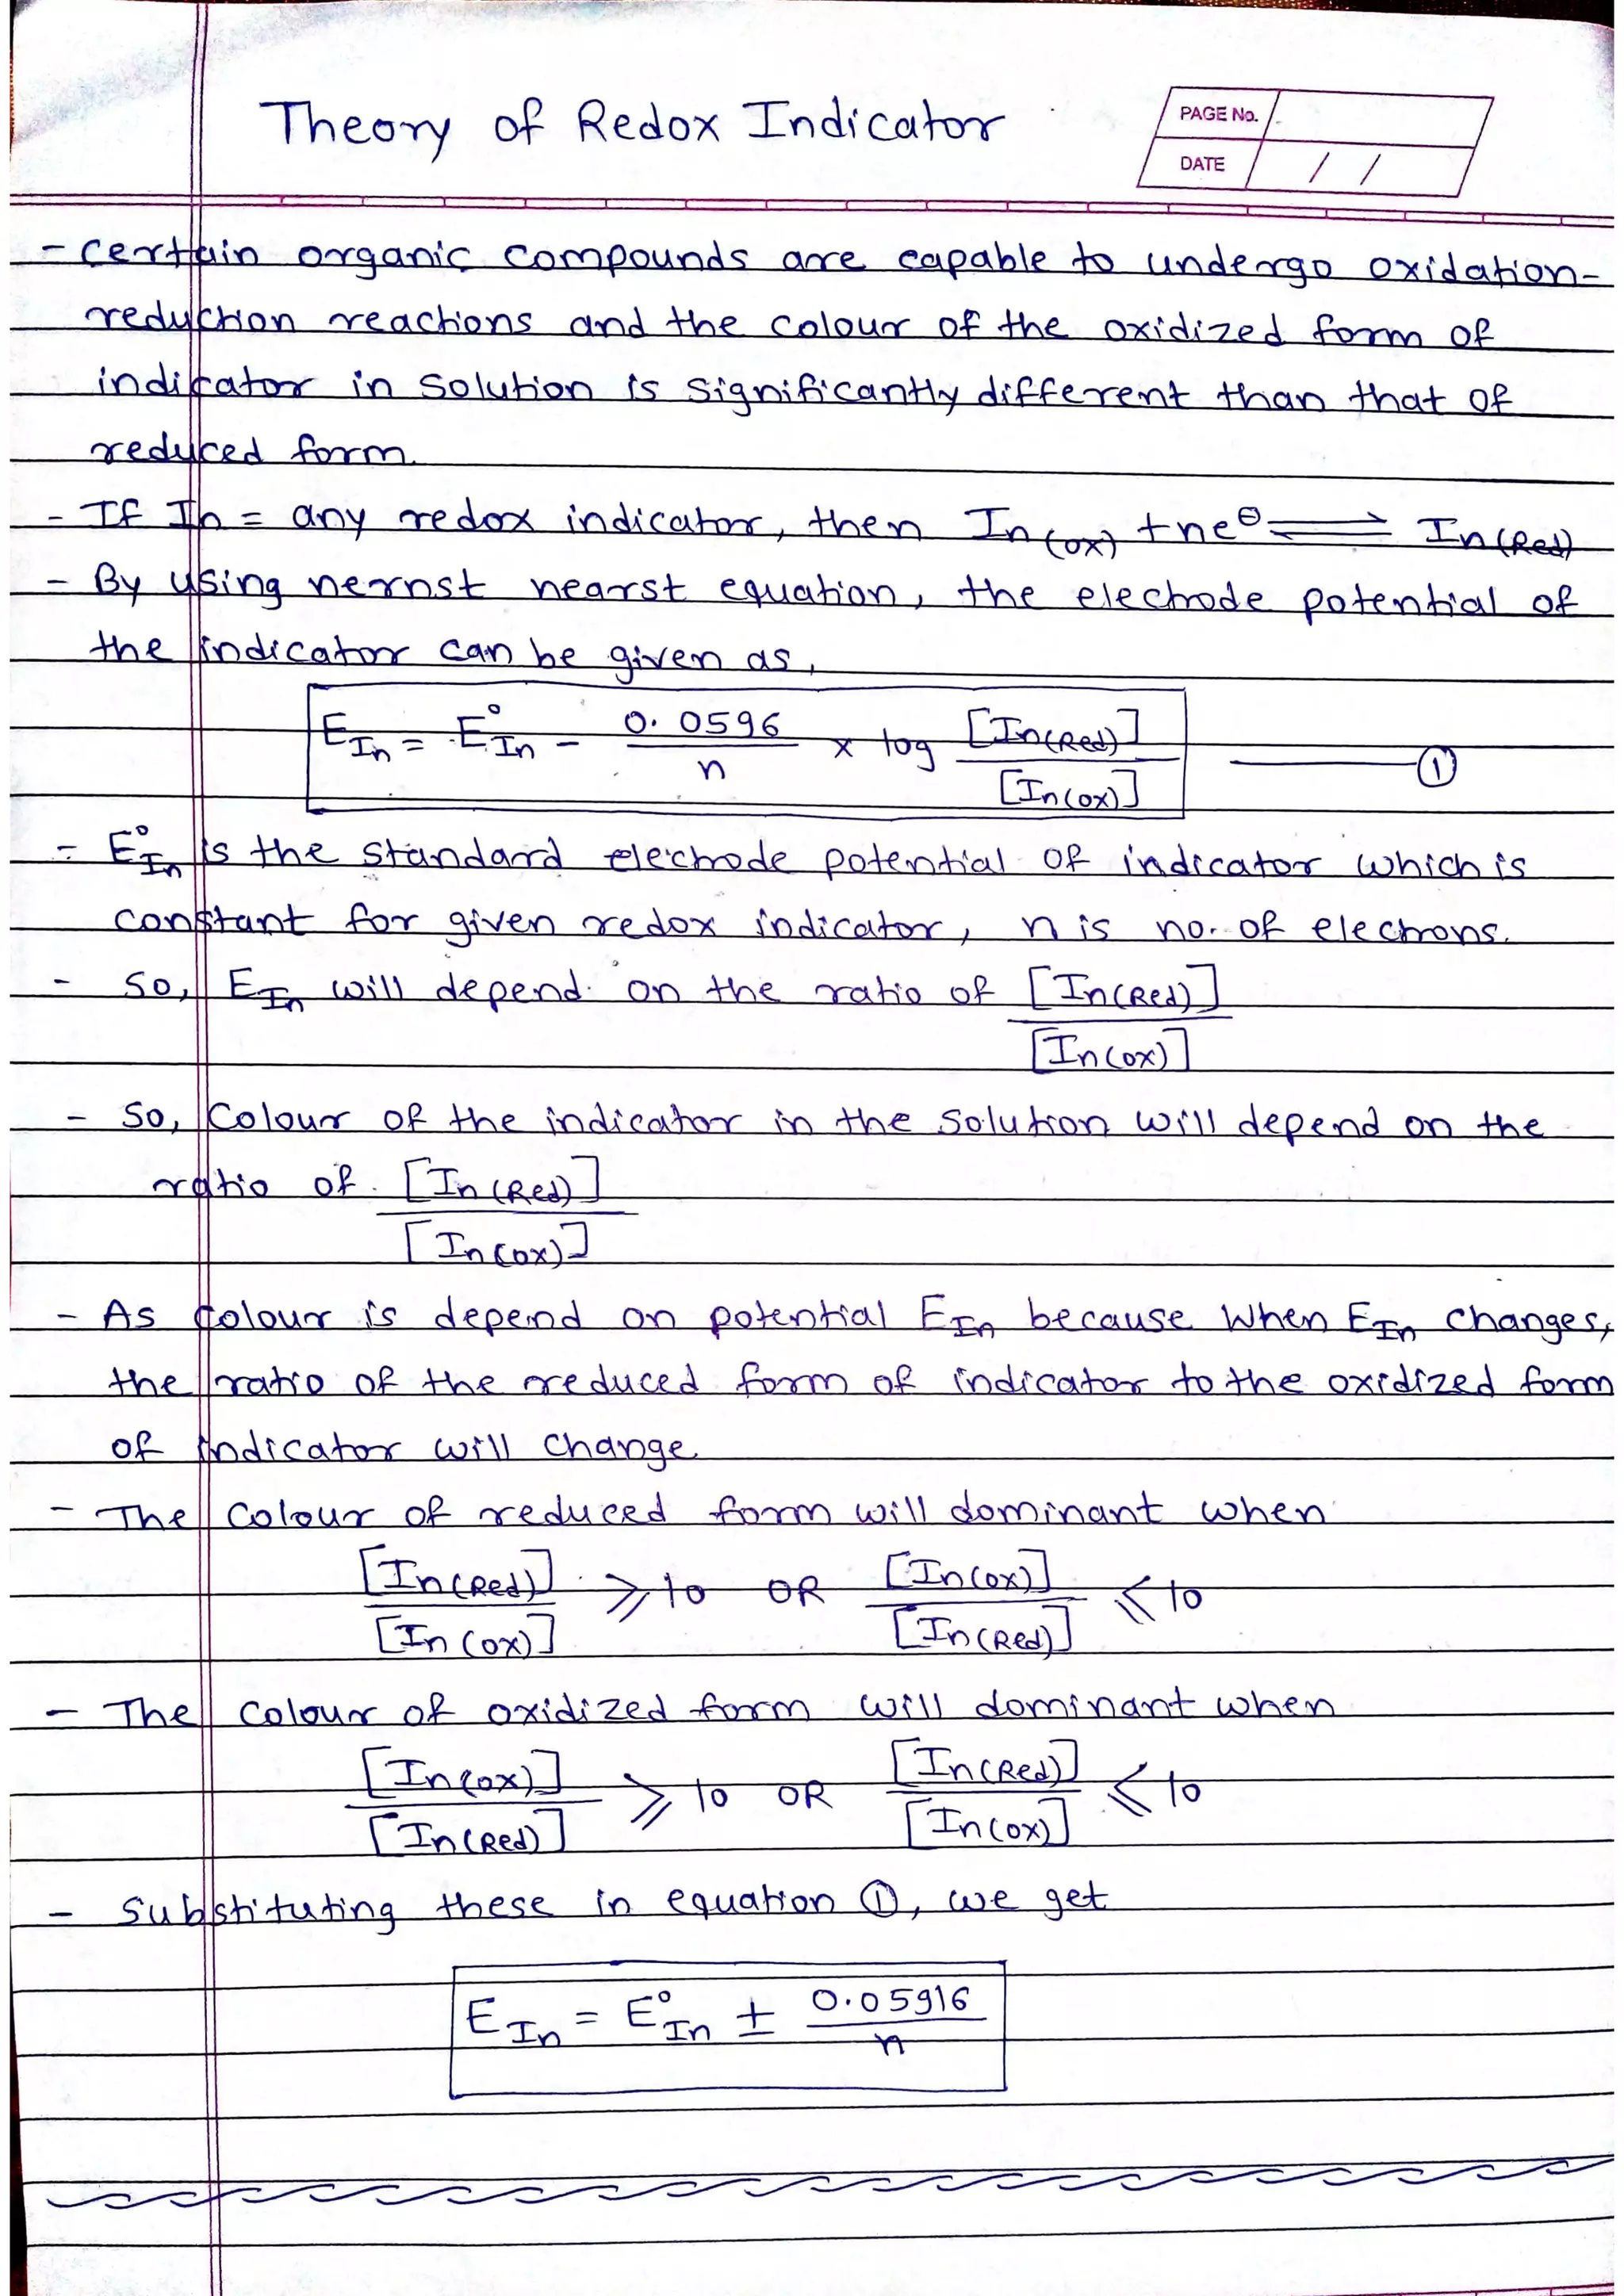 Theory of Redox Indicator
PAGE No.
DATE / /
- certain organic compounds are capable to undergo oxidation-
reduction reactions and the colour of the oxidized form of
indicator in solution is significantly different than that of
reduced form.
- If In = any redox indicator, then In(ox) + ne⊖ ⇌ In(Red)
- By using nernst nearst equation, the electrode potential of
the indicator can be given as,
E_In = E°_In - 0.0596/n x log [In(Red)]/[In(ox)] ——— ①
- E°_In is the standard electrode potential of indicator which is
constant for given redox indicator, n is no. of electrons.
- So, E_In will depend on the ratio of [In(Red)]/[In(ox)]
- So, Colour of the indicator in the solution will depend on the
ratio of [In(Red)]/[In(ox)]
- As colour is depend on potential E_In because when E_In changes,
the ratio of the reduced form of indicator to the oxidized form
of indicator will change.
- The colour of reduced form will dominant when
[In(Red)]/[In(ox)] ⩾ 10 OR [In(ox)]/[In(Red)] ⩽ 10
- The colour of oxidized form will dominant when
[In(ox)]/[In(Red)] ⩾ 10 OR [In(Red)]/[In(ox)] ⩽ 10
- Substituting these in equation ①, we get
E_In = E°_In ± 0.05916/n